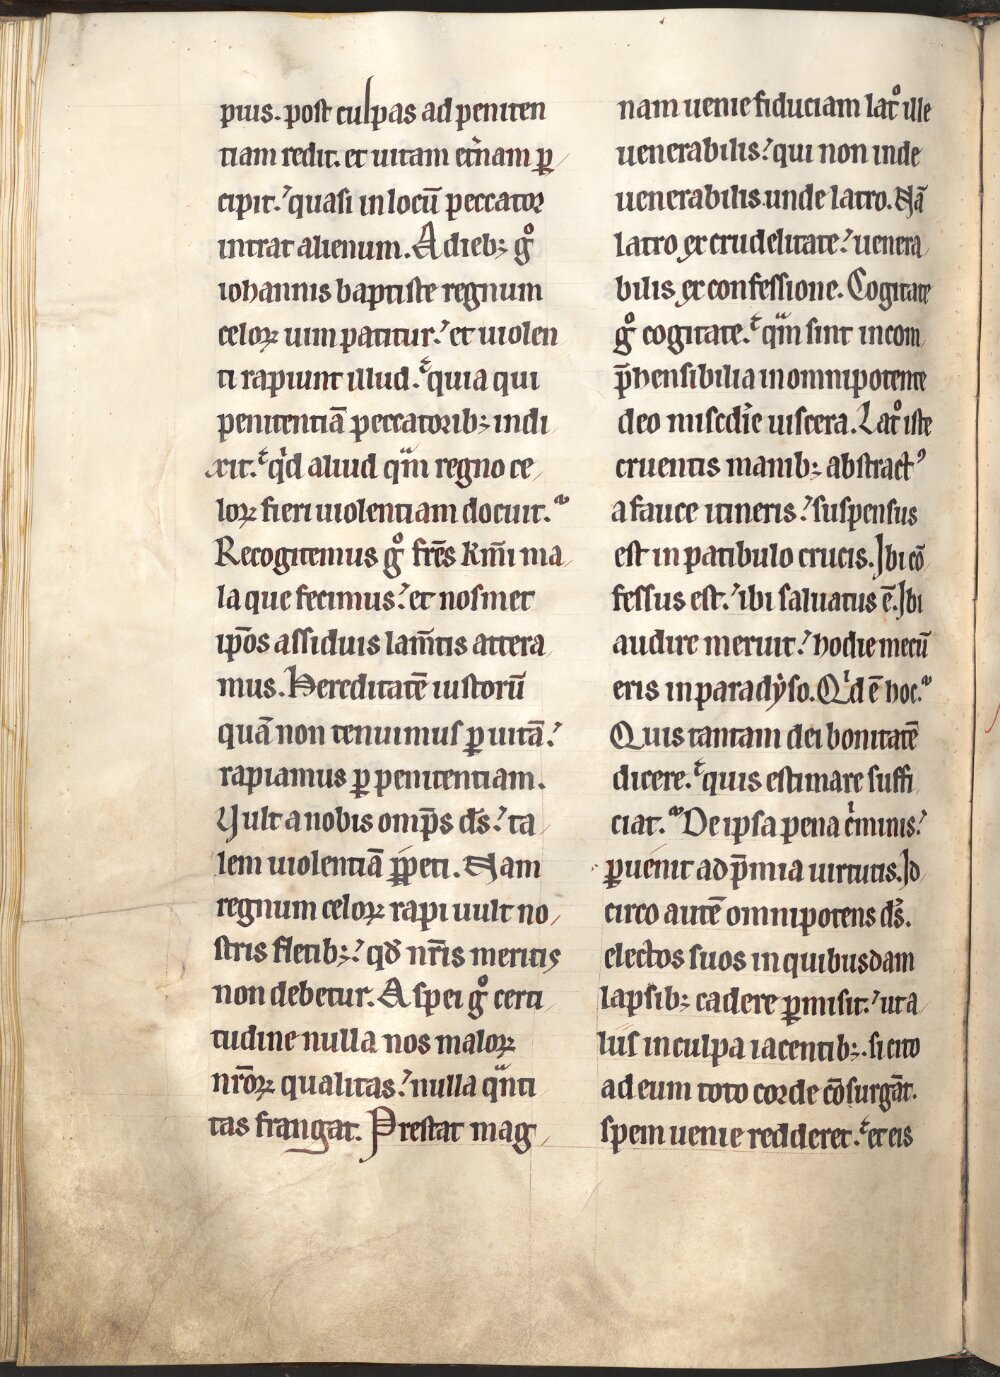 pius. post culpas ad peniten
tiam redit. et uitam et̉nam ꝑ
cipit.ˀ quasi in locū peccator
intrat alienum. A dieb; gͦ
iohannis baptiste regnum
celoꝝ uim patitur.ˀ et uiolen
ti rapiunt illud. quia qui
penitentiā peccatorib; indi
xit. qͥd aliud qᵃm regno ce
loꝝ fieri uiolentiam docuit.
Recogitemus gͦ fr̄es km̄i ma
la que fecimus.ˀ et nosmet
ip̄os assiduis lam̄tis attera
mus. Hereditatē iustorū
quā non tenuimus ꝑ uitā.ˀ
rapiamus ꝑ penitentiam.
Vult a nobis omp̄s ds̄.ˀ ta
lem uiolentiā ꝑpeti. Nam
regnum celoꝝ rapi uult no
stris fletib;.ˀ qđ nr̄is meritis
non debetur. A spei gͦ certi
tudine nulla nos maloꝝ
nr̄oꝝ qualitas.ˀ nulla qᵃnti
tas frangat. Prestat mag
nam uenie fiduciam latͦ ille
uenerabilis.ˀ qui non inde
uenerabilis unde latro. Nā
latro ex crudelitate.ˀ uenera
bilis ex confessione. Cogitate
gͦ cogitate. qᵃm sint incom
p̄hensibilia in omnipotente
deo misc̄die uiscera. Latͦ iste
cruentis manib; abstractꝰ
a fauce itineris.ˀ suspensus
est in patibulo crucis. Ibi cō
fessus est.ˀ ibi saluatus ē. Ibi
audire meruit.ˀ hodie mecū
eris in paradẏso. Qͥd ē hoc.
Quis tantam dei bonitatē
dicere. quis estimare suffi
ciat. De ipsa pena cͥminis.ˀ
ꝑuenit ad p̄mia uirtutis. Id
circo autē omnipotens ds̄.
electos suos in quibusdam
lapsib; cadere ꝑmisit.ˀ ut a
liis in culpa iacentib;. si cito
ad eum toto corde cōsurgāt.
spem uenie redderet. et eis